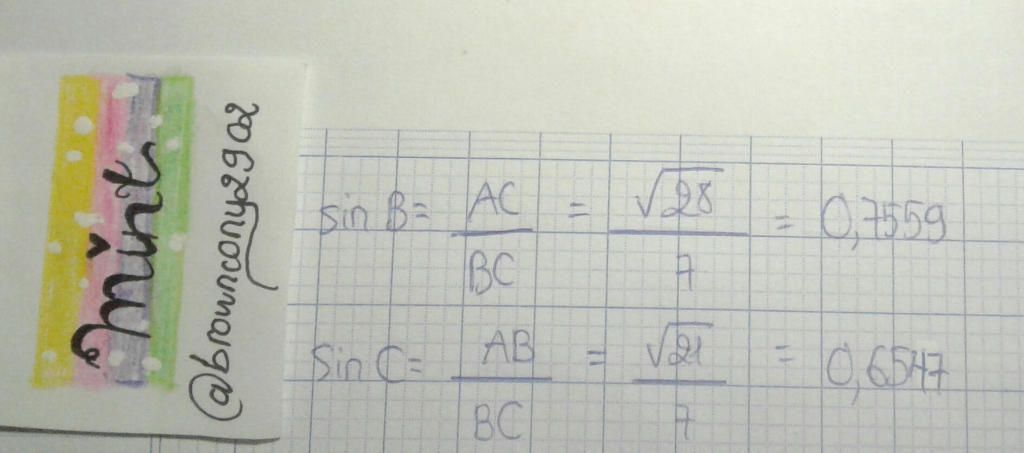 mint
@browncony2902
sin B = AC / BC = √28 / 7 = 0,7559
sin C = AB / BC = √21 / 7 = 0,6547